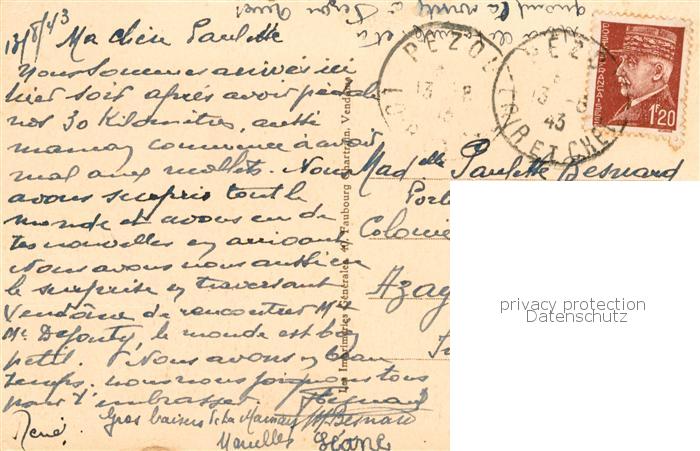 13/8/43 Ma chère Paulette
Nous sommes arrivés ici
hier soir après avoir pédalé
nos 30 kilomètres, aussi
maman commence à avoir
mal aux mollets. Nous
avons surpris tout le
monde et avons eu de
tes nouvelles en arrivant
Nous avons nous aussi eu
la surprise en traversant
Vendôme de rencontrer Mr
Me Defonty, le monde est bien
petit. Nous avons beau
temps. nous nous joignons tous
pour t'embrasser.
René.
Gros baisers de ta Maman MBesnard
Les Imprimeries Générales, 47, Faubourg Chartrain, Vendôme
PEZOU
13 -8
43
LOIR ET CHER
1F20
Madelle Paulette Besnard
Colonie
Azay
privacy protection
Datenschutz